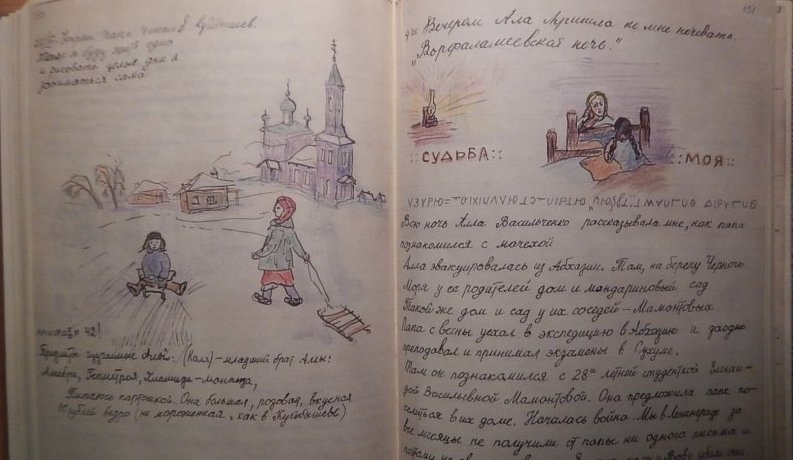 папа уехал в Куйбышев
буду жить одна
и рисовать целые дни и
заниматься сама
42!
Предметы изучаемые Аллой: (Коля) – младший брат Аллы:
Алгебра, Геометрия,
Питаюсь картошкой. Она большая, розовая, вкусная
ведро (не мороженная, как в Куйбышеве)
151
Вечером Алла пришла ко мне ночевать.
"Ворфаламеевская ночь."
::СУДЬБА:: ::МОЯ::
Всю ночь Алла Васильченко рассказывала мне, как папа
познакомился с мачехой
Алла эвакуировалась из Абхазии. Там, на берегу Черного
Моря у ее родителей дом и мандариновый сад
Такой же дом и сад у их соседей – Мамонтовых
Папа с весны уехал в экспедицию в Абхазию и заодно
преподавал и принимал экзамены в Сухуме.
Там он познакомился с 28и летней студенткой Зинаи-
дой Васильевной Мамонтовой. Она предложила папе по-
селиться в их доме. Началась война. Мы в Ленинграде за
все месяцы не получили от папы ни одного письма и